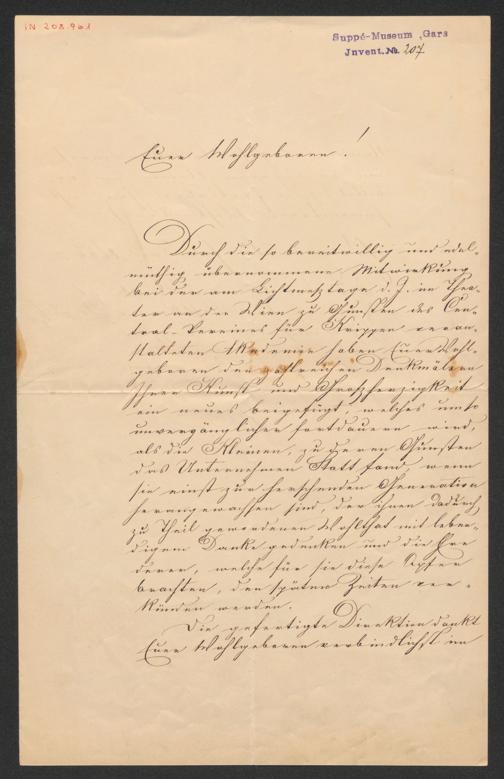 IN 208.961
Suppé-Museum, Gars
Invent. № 207
Euer Wohlgeboren!
Durch die so bereitwillig und edel-
müthig übernommene Mitwirkung
bei der am Lichtmeßtage d. J. im Thea-
ter an der Wien zu Gunsten des Cen-
tral-Vereines für Krippen veran-
stalteten Akademie haben Euer Wohl-
geboren den zahlreichen Denkmälern
Ihrer Kunst und Großherzigkeit
ein neues beigefügt, welches umso
unvergänglicher fortdauern wird,
als die Kleinen, zu deren Gunsten
das Unternehmen Statt fand, wenn
sie einst zur herrschenden Generation
herangewachsen sind, der ihnen dadurch
zu Theil gewordenen Wohlthat mit leben-
digem Danke gedenken und die Ehre
derer, welche für sie diese Opfer
brachten, den späten Zeiten ver-
künden werden.
Die gefertigte Direktion dankt
Euer Wohlgeboren verbindlichst im